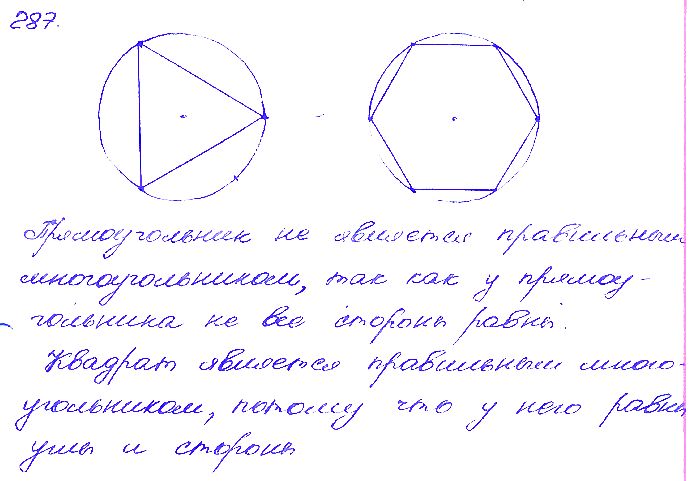 287.
Прямоугольник не является правильным
многоугольником, так как у прямоу-
гольника не все стороны равны.
Квадрат является правильным много-
угольником, потому что у него равны
углы и стороны